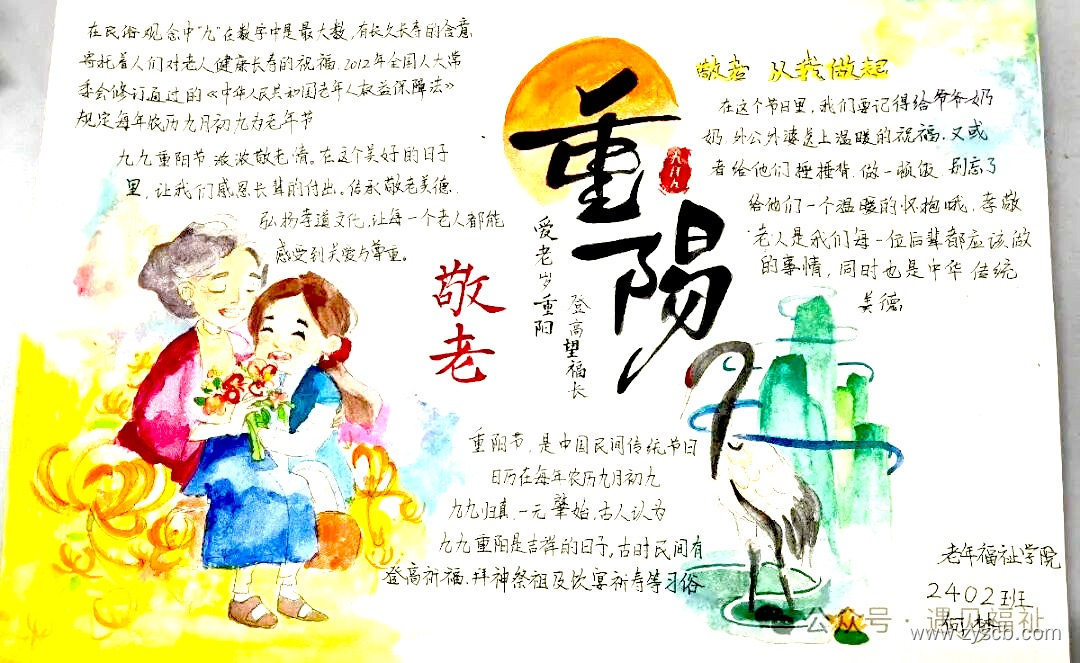 在民俗观念中"九"在数字中是最大数,有长久长寿的含意
寄托着人们对老人健康长寿的祝福.2012年全国人大常
委会修订通过的《中华人民共和国老年人权益保障法》
规定每年农历九月初九为老年节
九九重阳节 浓浓敬老情。在这个美好的日子
里,让我们感恩长辈的付出.传承敬老美德.
弘扬孝道文化,让每一个老人都能
感受到关爱与尊重。
敬老
重阳
九月九
爱老岁重阳
登高望福长
敬老 从我做起
在这个节日里,我们要记得给爷爷奶
奶 外公外婆送上温暖的祝福.又或
者给他们捶捶背.做一顿饭 别忘了
给他们一个温暖的怀抱哦.孝敬
老人是我们每一位后辈都应该做
的事情,同时也是中华 传统
美德
重阳节,是中国民间传统节日
日历在每年农历九月初九
九九归真.一元肇始.古人认为
九九重阳是吉祥的日子,古时民间有
登高祈福.拜神祭祖及饮宴祈寿等习俗
老年福祉学院
2402班
何梦
公众号·遇见福祉
www.zyscb.com